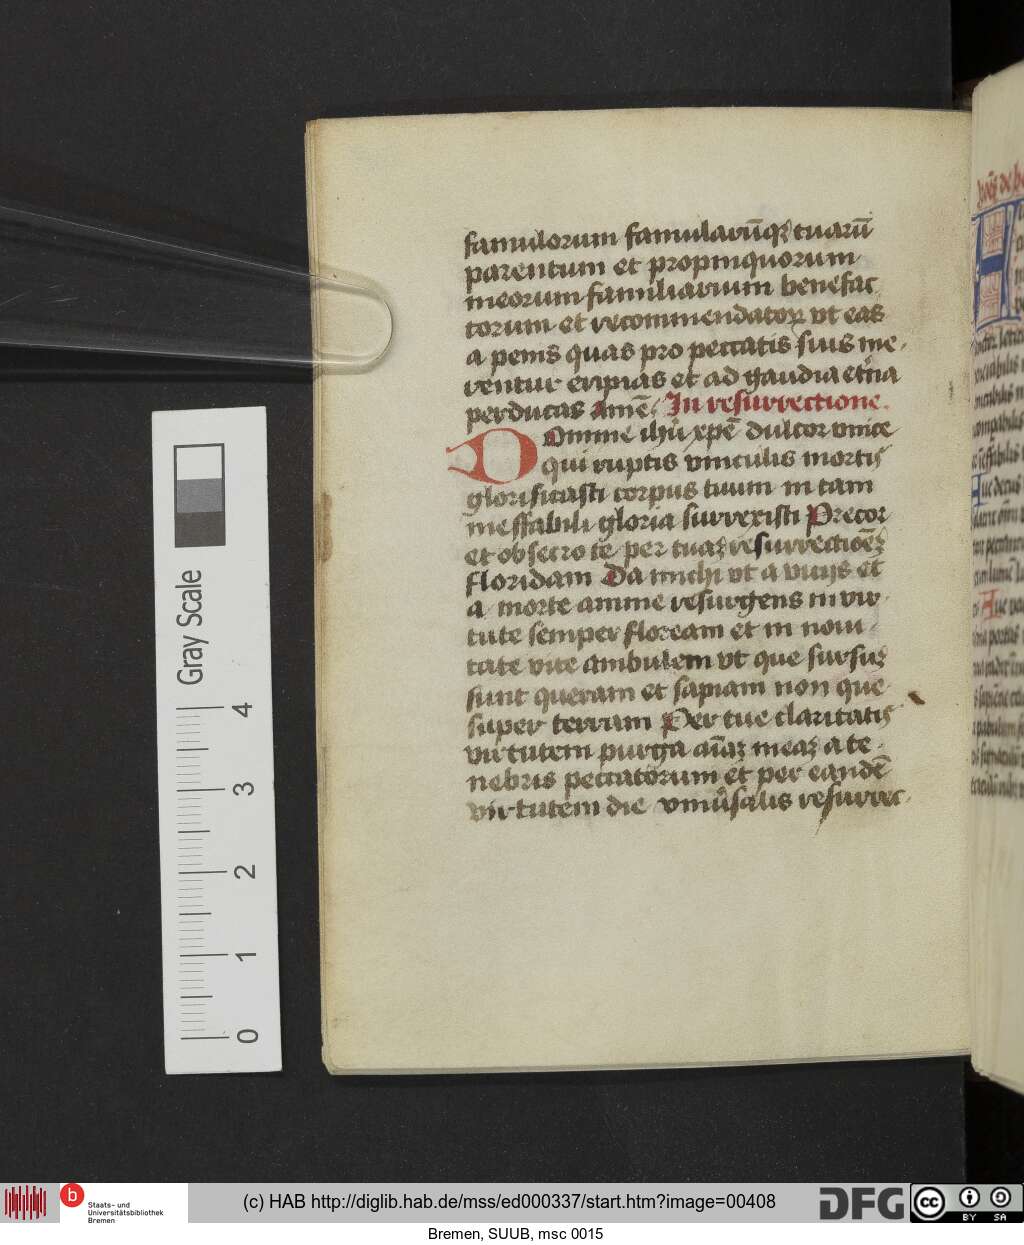 famulorum famularūqꝫ tuarū
parentum et propinquorum
meorum familiarium benefac
torum et recommendatoꝝ vt eas
a penis quas pro peccatis suis me-
rentur eripias et ad gaudia etna
perducas Amē. In resurrectione.
Domine ihū xpē dulcor vnice
qui ruptis vinculis mortis
glorificasti corpus tuum in tam
ineffabili gloria surrexisti Precor
et obsecro te per tuaꝫ resurrectioēꝫ
floridam Da michi vt a viciis et
a morte anime resurgens in vir-
tute semper floream et in noui
tate vite ambulem vt que sursuꝫ
sunt queram et sapiam non que
super terram Per tue claritatis
virtutem purga aīaꝫ meaꝫ a te
nebris peccatorum et per eandē
virtutem die vniūsalis resurrec-
Gray Scale
4
3
2
1
0
b
Staats- und
Universitätsbibliothek
Bremen
(c) HAB http://diglib.hab.de/mss/ed000337/start.htm?image=00408
DFG
cc
BY SA
Bremen, SUUB, msc 0015